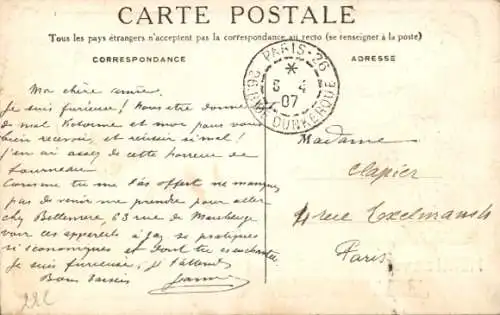 CARTE POSTALE
Tous les pays étrangers n'acceptent pas la correspondance au recto (se renseigner à la poste)
CORRESPONDANCE
ADRESSE
PARIS-26
*
6 - 4
07
26, RUE DUNKERQUE
Ma chère
Je suis furieuse! Vous être donné
de mal et moi pour vous
bien recevoir, et réussir si mal!
j'en ai assez de cette horreur de
fourneau
Comme tu me l'as offert ne manque
pas de venir me prendre pour aller
chez Bellemare, 63 rue de Maubeuge
voir ces appareils à gaz si pratiques
si économiques et dont tu es enchantée
Je suis furieuse, je t'attends
Bons baisers Jeanne
Madame
Clapier
rue Exelmansh
Paris